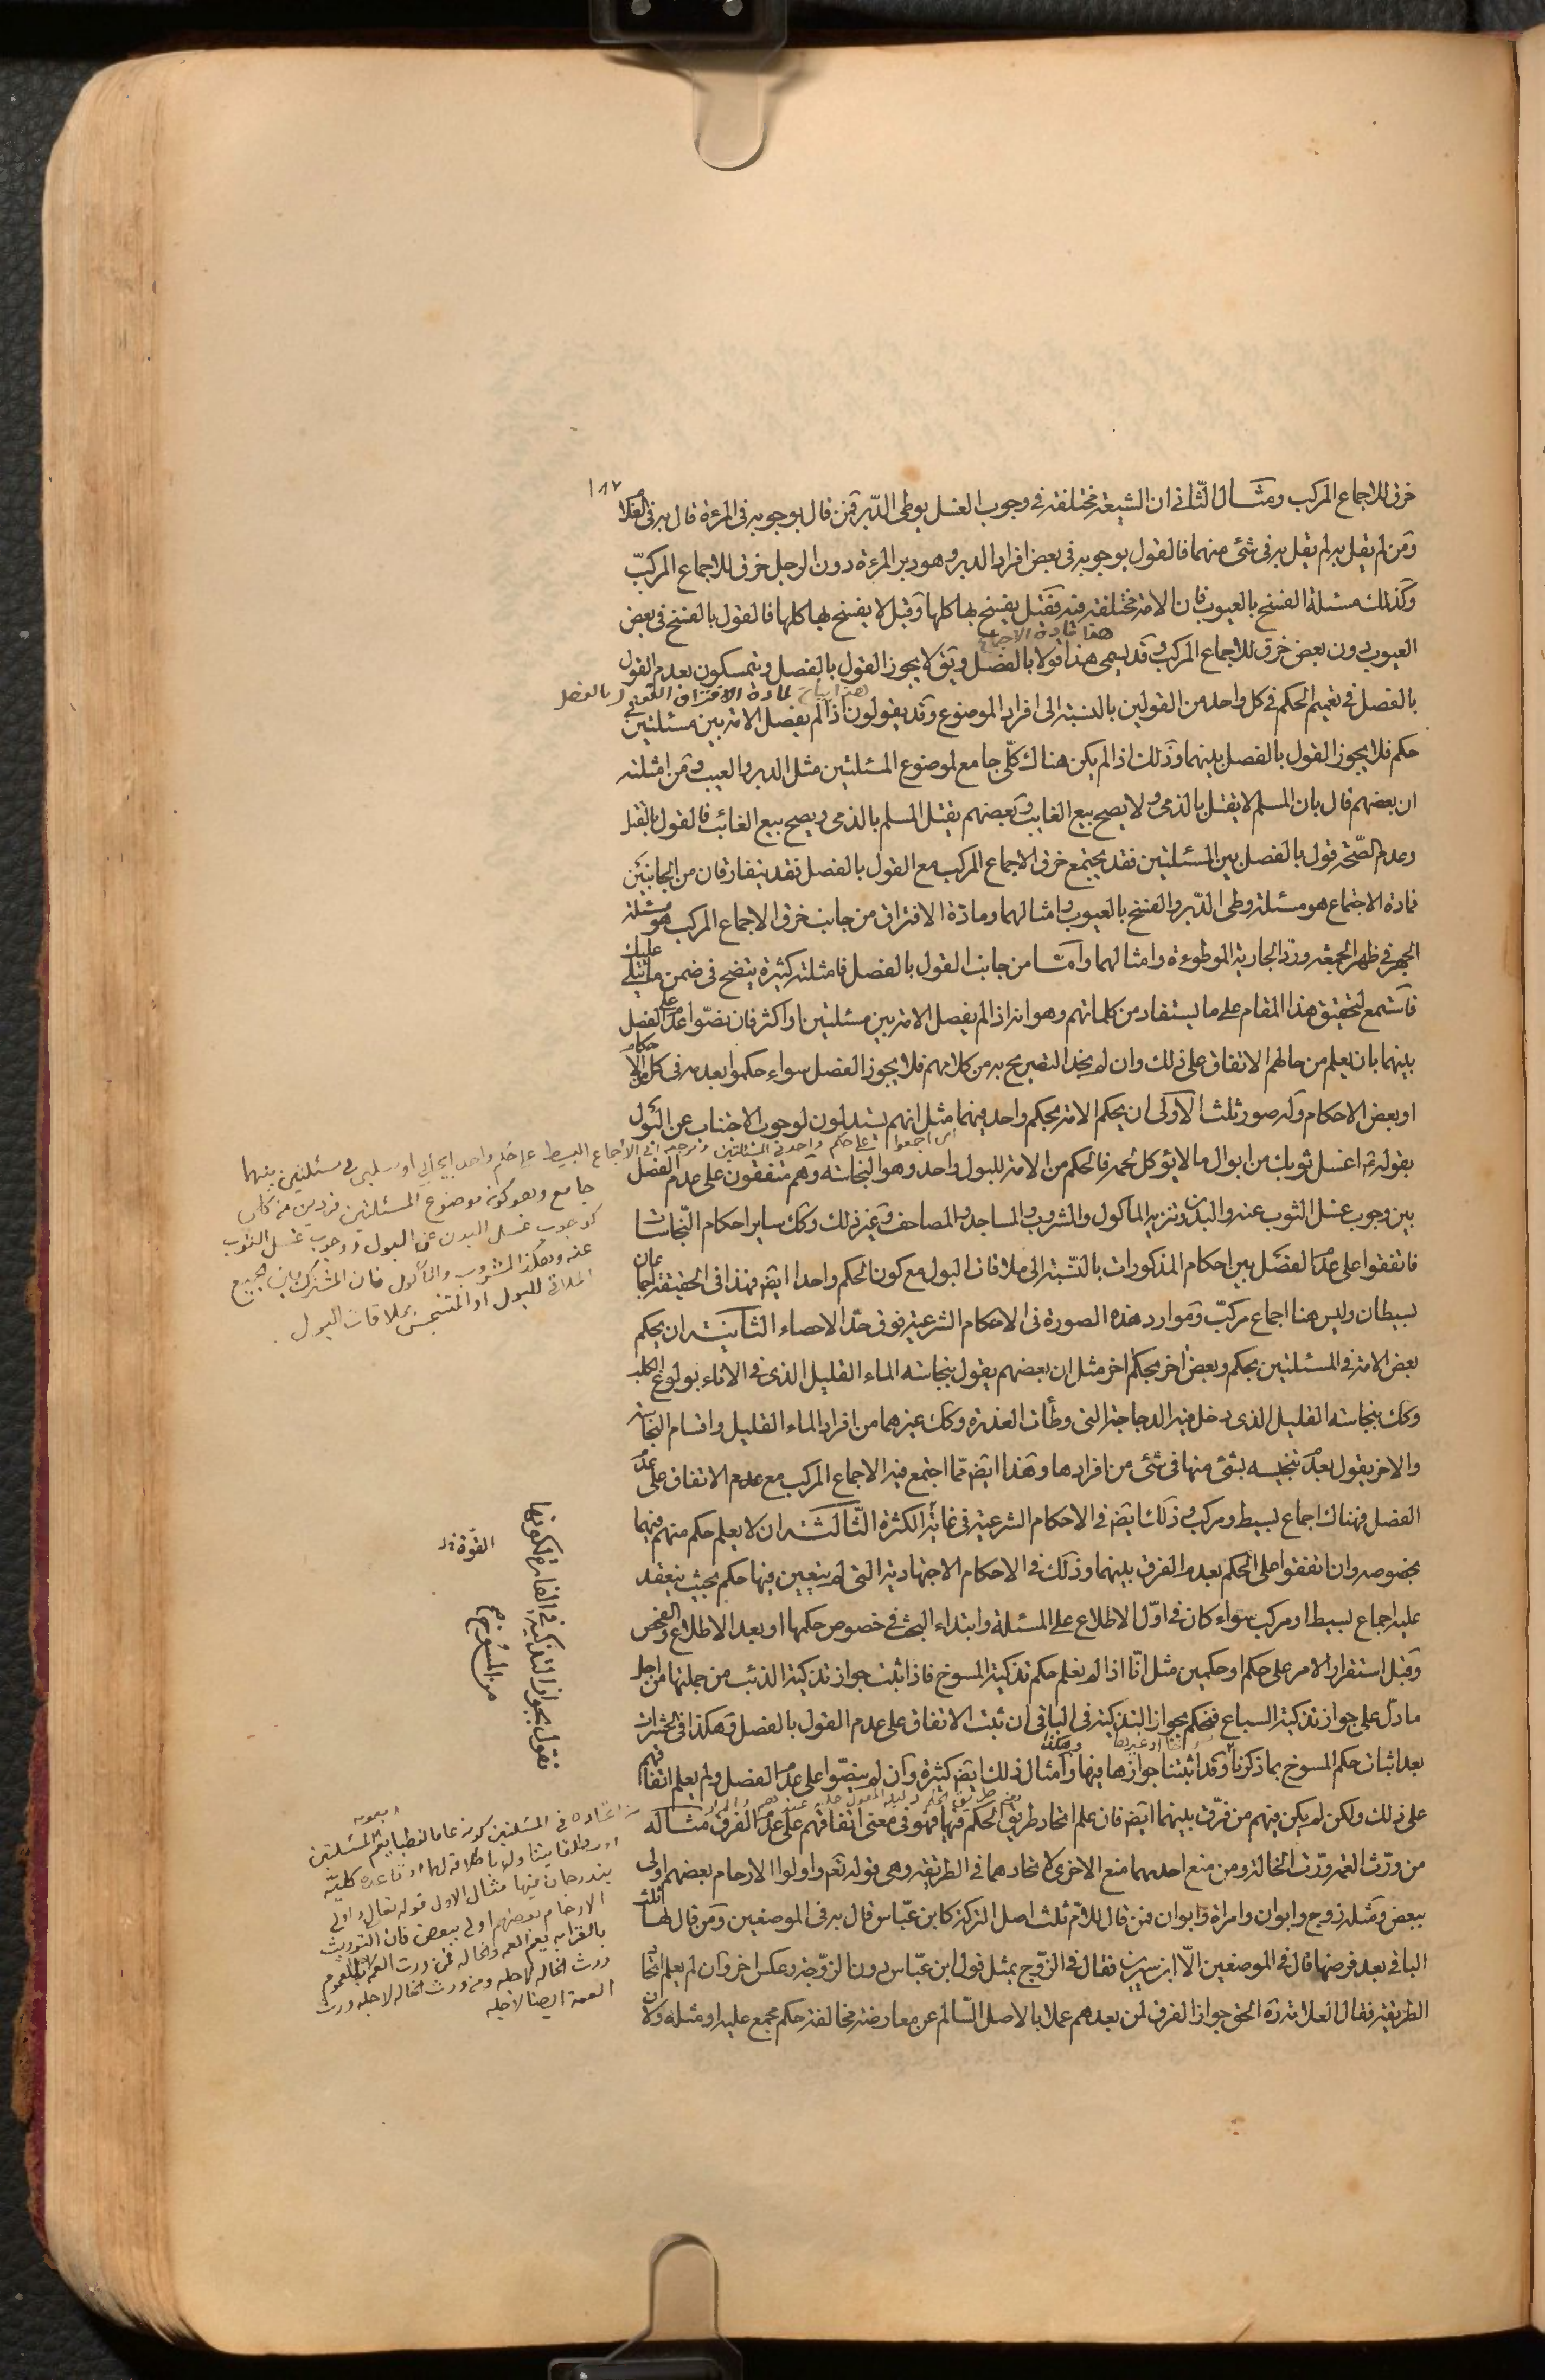 ١٨٧
خرق للاجماع المركب ومثال الثانی ان الشيعة مختلفة فی وجوب الغسل بوطی الدبر فمن قال بوجوبه فی المرءة قال به فی الغلام
ومن لم يقل به لم يقل به فی شئ منهما فالقول بوجوبه فی بعض افراد الدبر وهو دبر المرءة دون الرجل خرق للاجماع المركب
وكذلك مسئلة الفسخ بالعيوب فان الامة مختلفة فيه فقيل يفسخ بها كلها وقيل لا يفسخ بها كلها فالقول بالفسخ فی بعض
هذا مادة الاجتماع
العيوب دون بعض خرق للاجماع المركب وقد يسمی هذا قولا بالفصل ويق لا يجوز القول بالفصل ويتمسكون بعدم القول
بالفصل فی تعميم الحكم فی كل واحد من القولين بالنسبة الی افراد الموضوع وقد يقولون اذا لم يفصل الامة بين مسئلتين فی
حكم فلا يجوز القول بالفصل بينهما وذلك اذا لم يكن هناك كلی جامع لموضوع المسئلتين مثل الدبر والعيب ومن امثلته
ان بعضهم قال بان المسلم لا يقتل بالذمی ولا يصح بيع الغايب وبعضهم يقتل المسلم بالذمی ويصح بيع الغائب فالقول بالقتل
وعدم الصحة قول بالفصل بين المسئلتين فقد يجتمع خرق الاجماع المركب مع القول بالفصل فقد يتفارقان من الجانبين
فمادة الاجتماع هو مسئلة وطی الدبر والفسخ بالعيوب وامثالهما ومادة الافتراق من جانب خرق الاجماع المركب هو مسئلة
الجهر فی ظهر الجمعة ورد الجارية الموطوءة وامثالهما واما من جانب القول بالفصل فامثلته كثيرة يتضح فی ضمن ما يتلی عليك
فاستمع لتحقيق هذا المقام علی ما يستفاد من كلماتهم وهو انه اذا لم يفصل الامة بين مسئلتين او اكثر فان نصوا علی عدم الفصل
بينهما بان يعلم من حالهم الاتفاق علی ذلك وان لم يجد التصريح به من كلامهم فلا يجوز الفصل سواء حكموا بعدمه فی كل الاحكام
او بعض الاحكام وله صور ثلث الاولی ان يحكم الامة بحكم واحد فيهما مثل انهم يستدلون لوجوب الاجتناب عن البول
بقوله ع اغسل ثوبك من ابوال ما لا يؤكل لحمه فالحكم من الامة للبول واحد وهو النجاسة وهم متفقون علی عدم الفصل
بين وجوب غسل الثوب عنه والبدن وتنزيه المأكول والمشروب والمساجد والمصاحف وغير ذلك وكك ساير احكام النجاسات
فاتفقوا علی عدم الفصل بين احكام المذكورات بالنسبة الی ملاقات البول مع كون الحكم واحدا ايض فهذا فی الحقيقة اجماعان
بسيطان وليس هنا اجماع مركب وموارد هذه الصورة فی الاحكام الشرعية فوق حد الاحصاء الثانية ان يحكم
بعض الامة فی المسئلتين بحكم وبعض اخر بحكم اخر مثل ان بعضهم يقول بنجاسة الماء القليل الذی فی الاناء بولوغ الكلب
وكك بنجاسة القليل الذی دخل فيه الدجاجة التی وطأت العذرة وكك غيرهما من افراد الماء القليل واقسام النجاسة
والاخر يقول بعدم تنجيسه بشئ منها فی شئ من افرادها وهذا ايض مما اجتمع فيه الاجماع المركب مع عدم الاتفاق علی عدم
الفصل فهناك اجماع بسيط ومركب وذلك ايض فی الاحكام الشرعية فی غاية الكثرة الثالثة ان لا يعلم حكم منهم فيهما
بخصوصه وان اتفقوا علی الحكم بعدم الفرق بينهما وذلك فی الاحكام الاجتهادية التی لم يتعين فيها حكم بحيث ينعقد
عليه اجماع بسيط او مركب سواء كان فی اول الاطلاع علی المسئلة وابتداء البحث فی خصوص حكمها او بعد الاطلاع والفحص
وقبل استقرار الامر علی حكم او حكمين مثل انا اذا لم نعلم حكم تذكية المسوخ فاذا ثبت جواز تذكية الذئب من جملتها من اجل
ما دل علی جواز تذكية السباع فنحكم بجواز التذكية فی الباقی ان ثبت الاتفاق علی عدم القول بالفصل وهكذا فی الحشرات
بعد اثبات حكم المسوخ بما ذكرنا وقد اثبتنا جوازها فيها وامثال ذلك ايض كثيرة وان لم ينصوا علی عدم الفصل ولم يعلم اتفاقهم
علی ذلك ولكن لم يكن فيهم من فرق بينهما ايض فان علم اتحاد طريق الحكم فيها فهو فی معنی اتفاقهم علی عدم الفرق مثاله
من ورث العمة ورث الخالة ومن منع احديهما منع الاخری لاتحادهما فی الطريقة وهی قوله تعم واولوا الارحام بعضهم اولی
ببعض ومثله زوج وابوان وامراة وابوان فمن قال للام ثلث اصل التركة كابن عباس قال به فی الموضعين ومن قال لها ثلث
الباقی بعد فرضها قال فی الموضعين الا ابن سيرين فقال فی الزوج بمثل قول ابن عباس دون الزوجة وعكس اخر وان لم يعلم اتحاد
الطريقة فقال العلامة ره الحق جواز الفرق لمن بعدهم عملا بالاصل السالم عن معارضة مخالفة حكم مجمع عليه او مثله ولان
ای اجمعوا علی حكم واحد فی المسئلتين ومرجعه الی الاجماع البسيط علی حكم واحد ايجابی او سلبی فی مسئلتين بينهما
جامع وهو كونه موضوع المسئلتين فردين من كلی
كوجوب غسل البدن عن البول ووجوب غسل الثوب
عنه وهكذا المشروب والمأكول فان المشترك بين جميع
الملاقی للبول او المتنجس بملاقات البول
فنقول بجواز التذكية فی الفارة لكونها
من المسوخ
القوة
فی المسئلتين كونه عاما لفظيا يعم المسئلتين بعمومه
يندرجان فيها مثال الاول قوله تعالی واولی
الارحام بعضهم اولی ببعض فان التوريث
بالقرابة يعم العمة والخالة فمن ورث العمة للعموم
ورث الخالة لاجله ومن ورث الخالة لاجله ورث
العمة ايضا لاجله